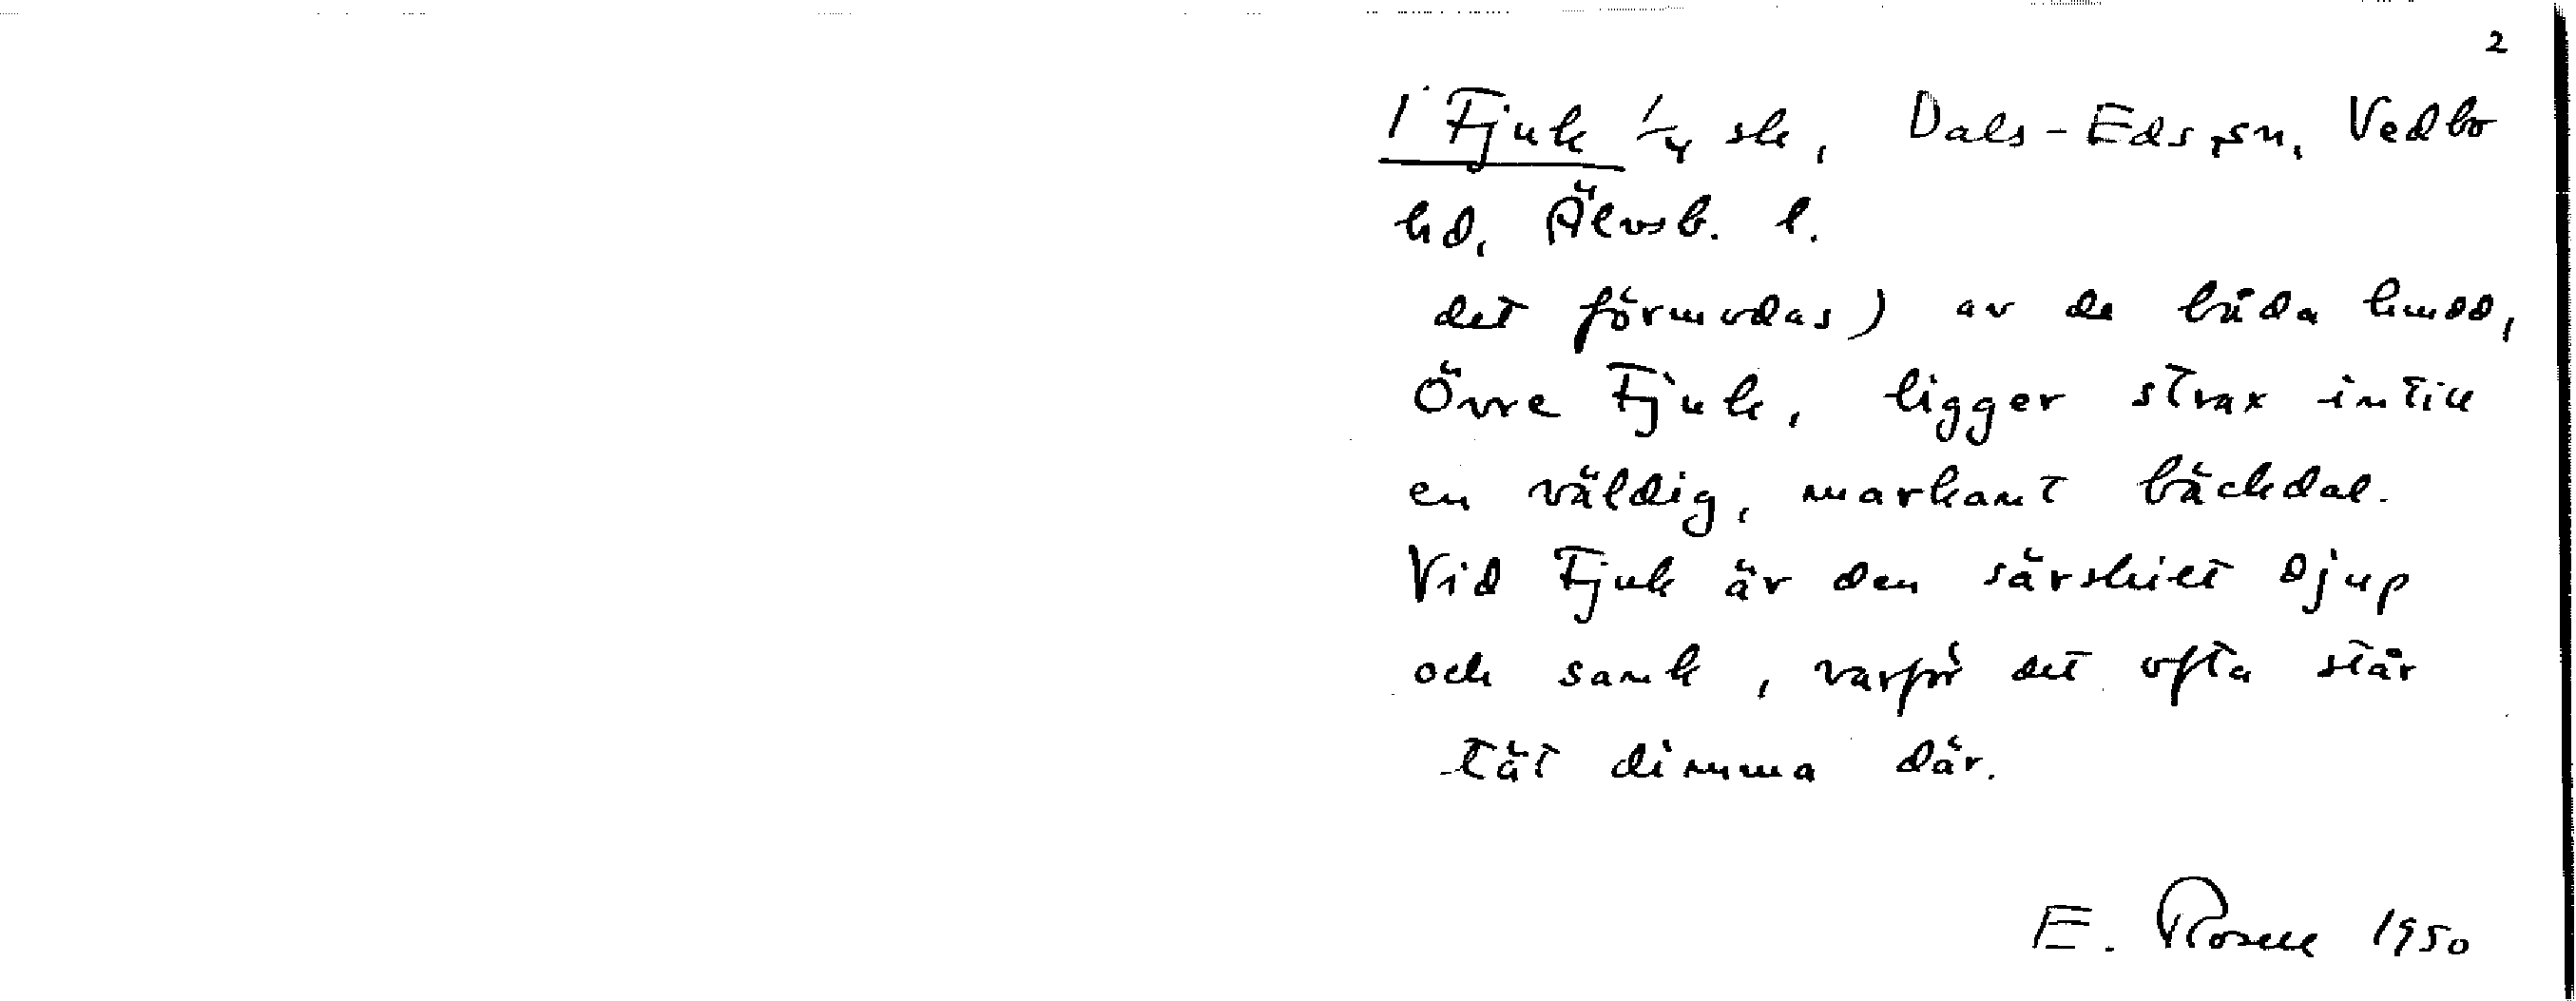 2
1 Fjuk 1/4 sk, Dals-Eds sn, Vedbo
hd, Älvsb. l.
det förmodas) av de båda hmdd,
Övre Fjuk, ligger strax intill
en väldig, markant bäckdal.
Vid Fjuk är den särskilt djup
och sank, varför det ofta står
tät dimma där.
E. Rosell 1950